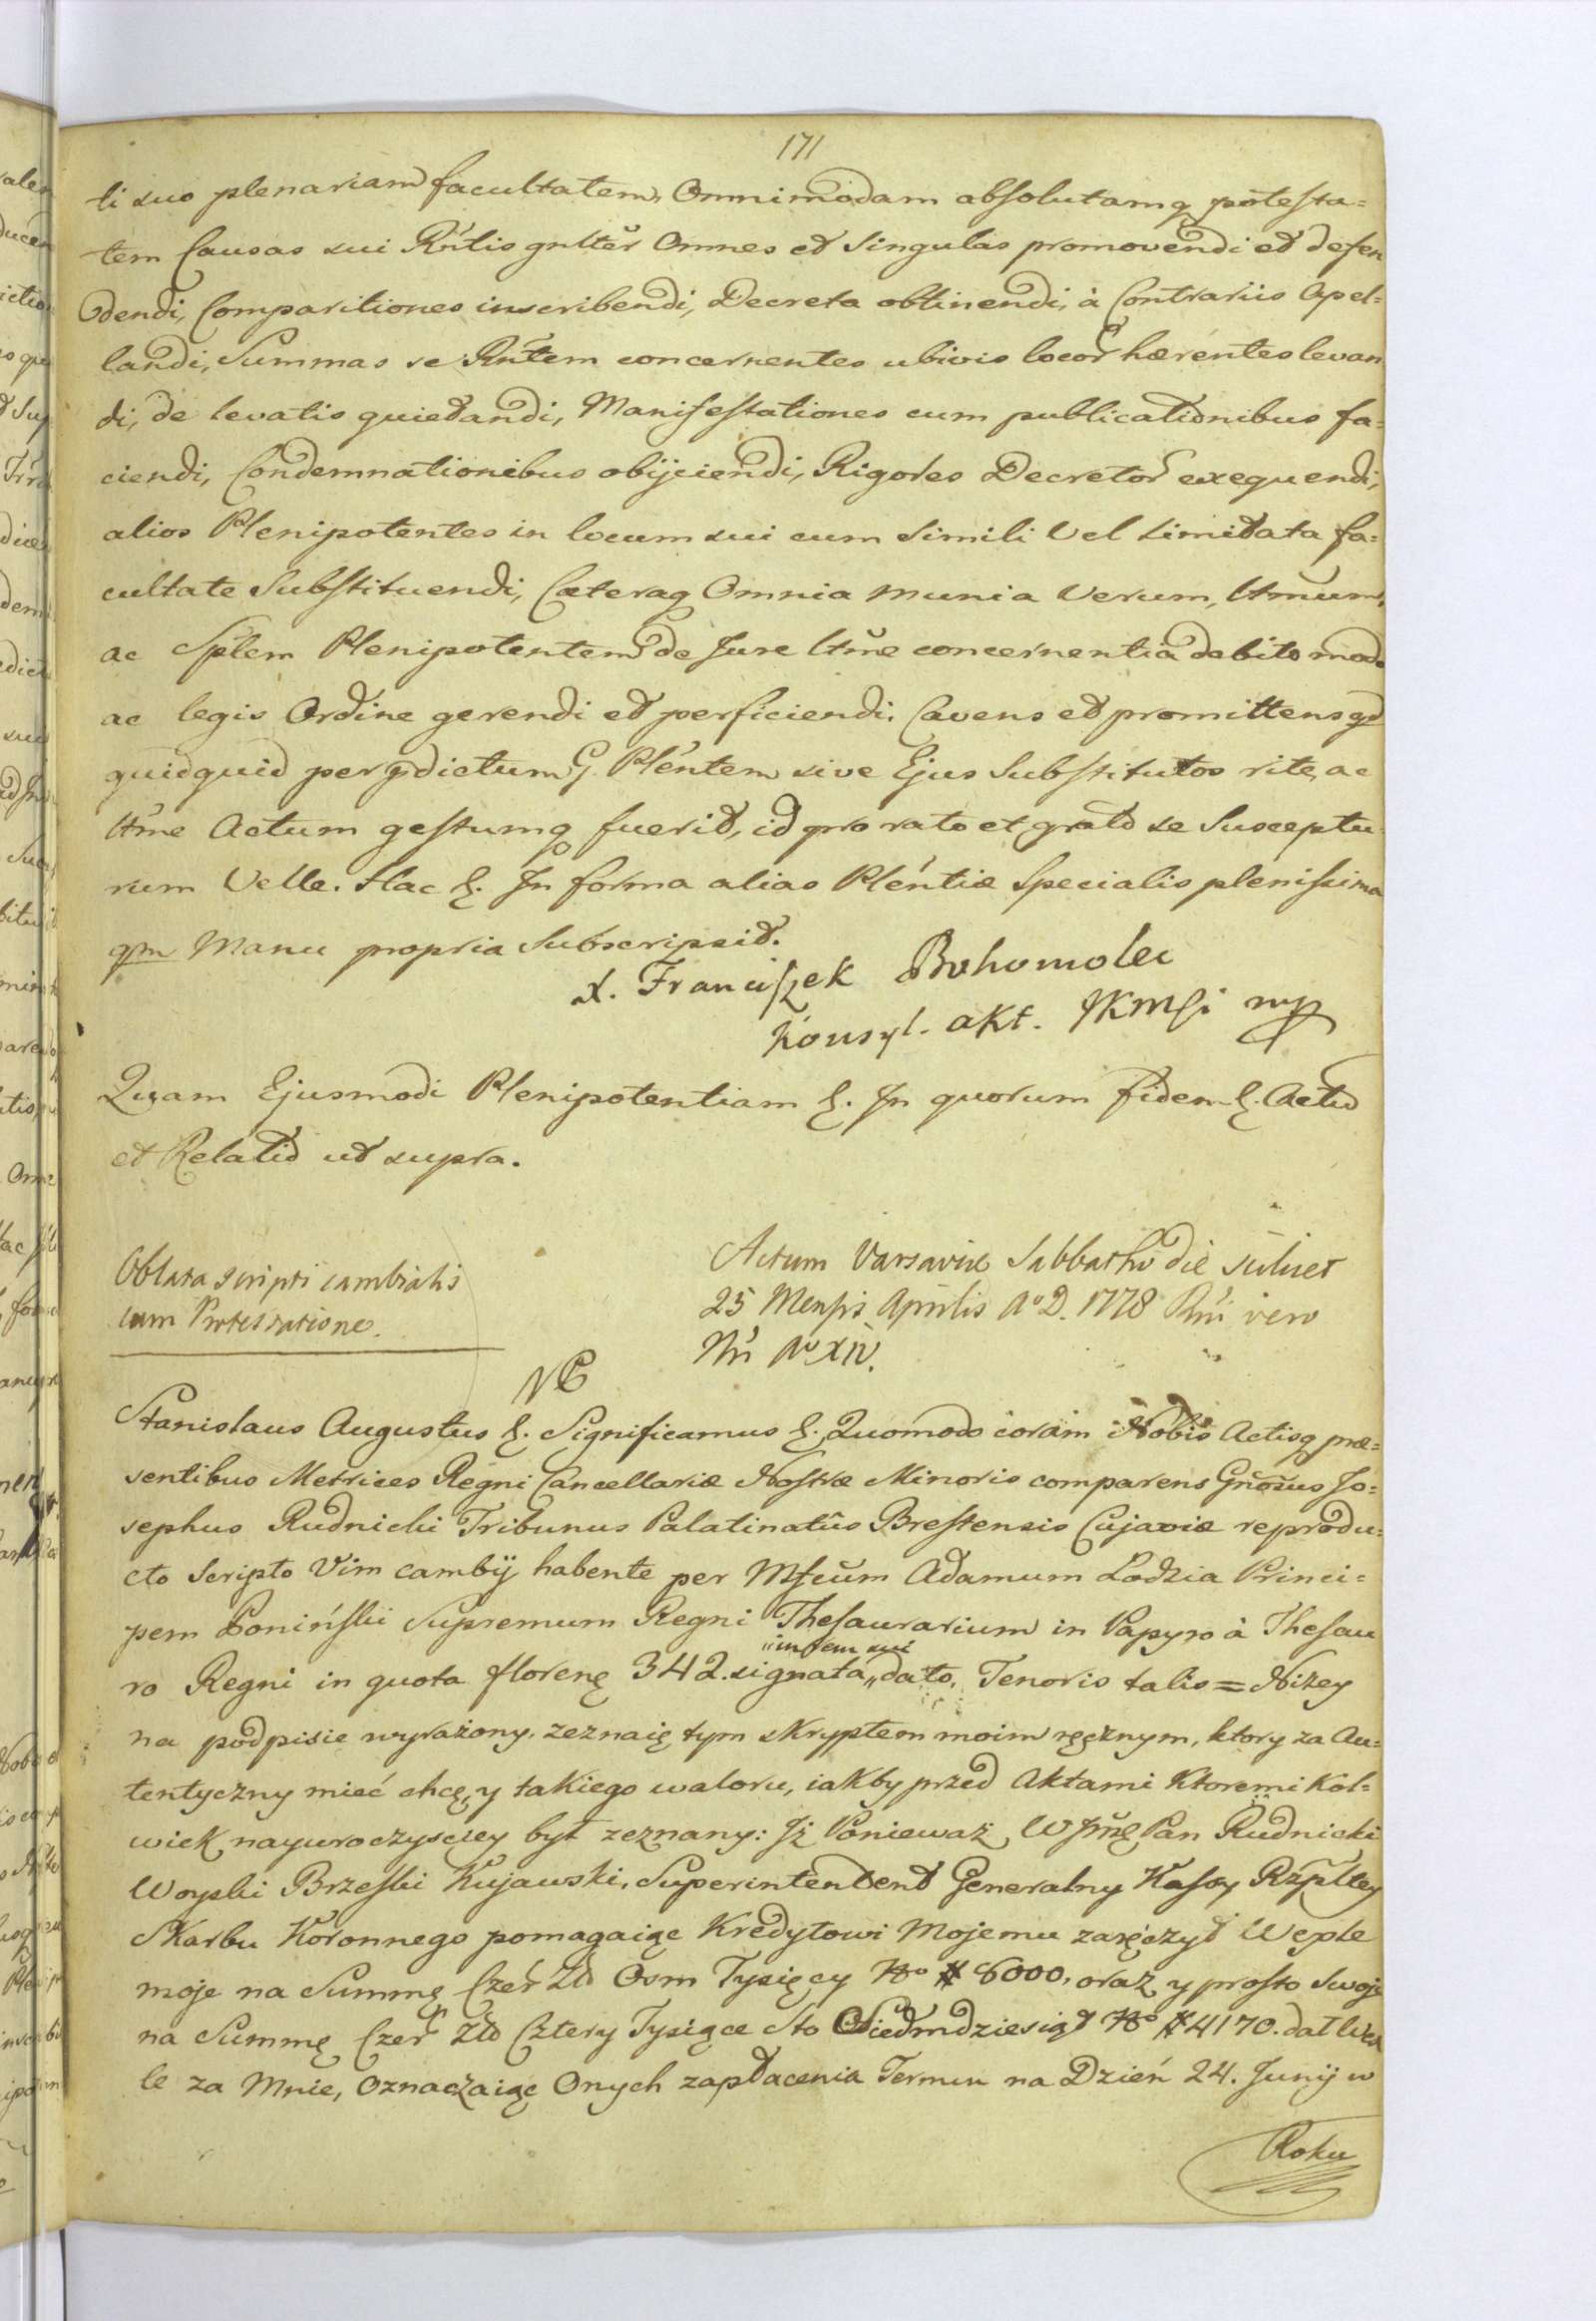 171
ti suo plenariam facultatem, Omnimodam absolutamq potesta=
tem Causas sui Rntis gnlter Omnes et Singulas promovendi et defen
dendi, Comparitiones inscribendi, Decreta obtinendi, à Contrariis Apel=
landi, Summas se Rntem concernentes ubivis locor hærentes levan
di, de levatis quietandi, Manifestationes cum publicationibus fa=
ciendi, Condemnationibus obijciendi, Rigores Decretor exequendi,
alios Plenipotentes in locum sui cum Simili Vel Limitata fa=
cultate Substituendi, Cæteraq Omnia Munia Verum, Ltmum,
ac Splem Plenipotentem de Jure Ltme concernentia debito modo
ac legis Ordine gerendi et perficiendi. Cavens et promittens qd
quidquid per pdictum G. Plentem sive Ejus Substitutos rite, ac
Ltme Actum gestumq fuerit, id pro rato et grato se Susceptu
rum Velle. Hac &. In forma alias Plentiæ Specialis plenissima
qm Manu propria Subscripsit.
X. Franciszek Bohomolec
Konsyl. akt. JKMSi mp
Quam Ejusmodi Plenipotentiam &. In quorum fidem &. Actu
et Relatio ut supra.
Oblata scripti cambialis
cum Protestatione.
Actum Varsaviæ Sabbatho die scilicet
25 Mensis Aprilis Ao D. 1778 Rni vero
Nri Ao XIV.
Stanislaus Augustus &. Significamus &. Quomodo coram Nobis Actisq præ=
sentibus Metrices Regni Cancellariæ Nostræ Minoris comparens Gnosus Jo=
sephus Rudnicki Tribunus Palatinatûs Brestensis Cujaviæ reprodu=
cto Scripto Vim cambij habente per Mfcum Adamum Lodzia Princi=
pem Poniński Supremum Regni Thesaurarium in Papyro à Thesau
ro Regni in quota floreng 342. signata „dato, Tenoris talis = Niżey
„in rem sui
na podpisie wyrażony, zeznaię tym skryptem moim ręcznym, ktory za Au=
tentyczny mieć chcę, y takiego waloru, iakby przed Aktami Ktoremi kol=
wiek nayuroczysciey był zeznany: Jż Poniewaz WJmę Pan Rudnicki
Woyski Brzeski Kujawski, Superintendent Generalny Kassy Rzpltey
Skarbu Koronnego pomagaiąc Kredytowi Mojemu zaręczył Wexle
moje na Summę Czer Zło Osm Tysięcy No # 8000, oraz y prosto Swoje
na Summę Czer Zło Cztery Tysiące Sto Siedmdziesiąt No # 4170. dał Wex
le za Mnie, Oznaczaiąc Onych zapłacenia Termin na Dzień 24. Junij w
Roku